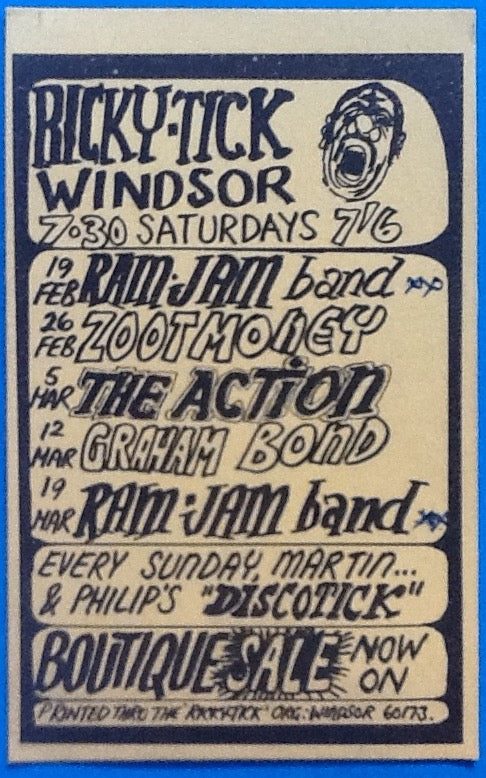 RICKY-TICK
WINDSOR
7.30 SATURDAYS 7'6
19 FEB RAM-JAM band xxx
26 FEB ZOOT MONEY
5 MAR THE ACTION
12 MAR GRAHAM BOND
19 MAR RAM-JAM band xx
EVERY SUNDAY, MARTIN...
& PHILIP'S "DISCOTICK"
BOUTIQUE SALE NOW ON
PRINTED THRO THE 'RICKY-TICK' ORG: WINDSOR 60173.